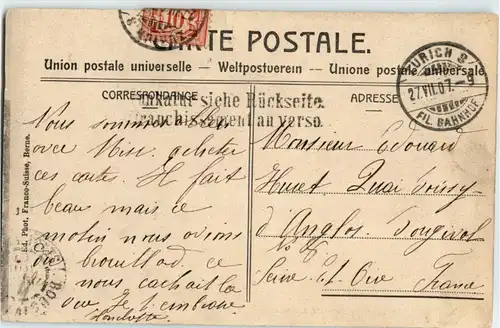 CARTE POSTALE.
Union postale universelle — Weltpostverein — Unione postale universale
CORRESPONDANCE
ADRESSE
siehe Rückseite.
Franchissement au verso.
ZURICH 8
27.VII.07. - 9
FIL. BAHNHOF
10
Vous sommes
avec Miss. acheter
ces cartes. Il fait
beau mais ce
matin nous avions
du brouillard ce
nous cachait la
vue Je t'embrasse
Monsieur Edouard
Huset Quai Boissy
d'Anglas. Bougival
Seine et Oise France
Ed. Phot. Franco-Suisse, Berne.